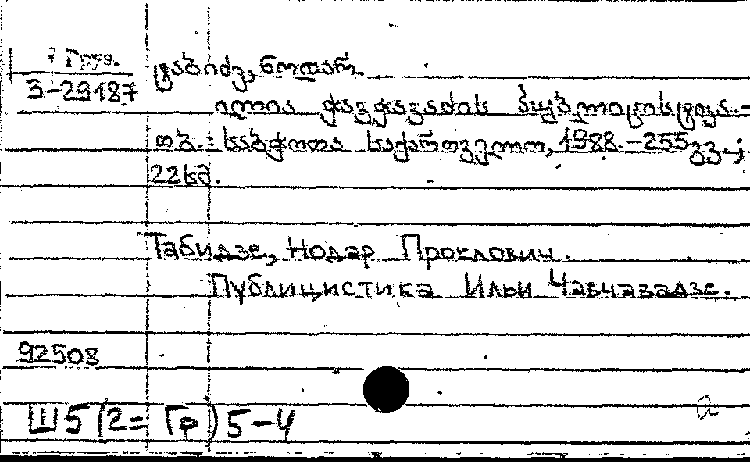 Груз.
3-29187
ტაბიძე, ნოდარ.
ილია ჭავჭავაძის პუბლიცისტიკა.-
თბ.: საბჭოთა საქართველო, 1988.-255გვ.;
22სმ.
Табидзе, Нодар Проклович.
Публицистика Ильи Чавчавадзе.
92508
Ш5(2=Гр)5-4
а